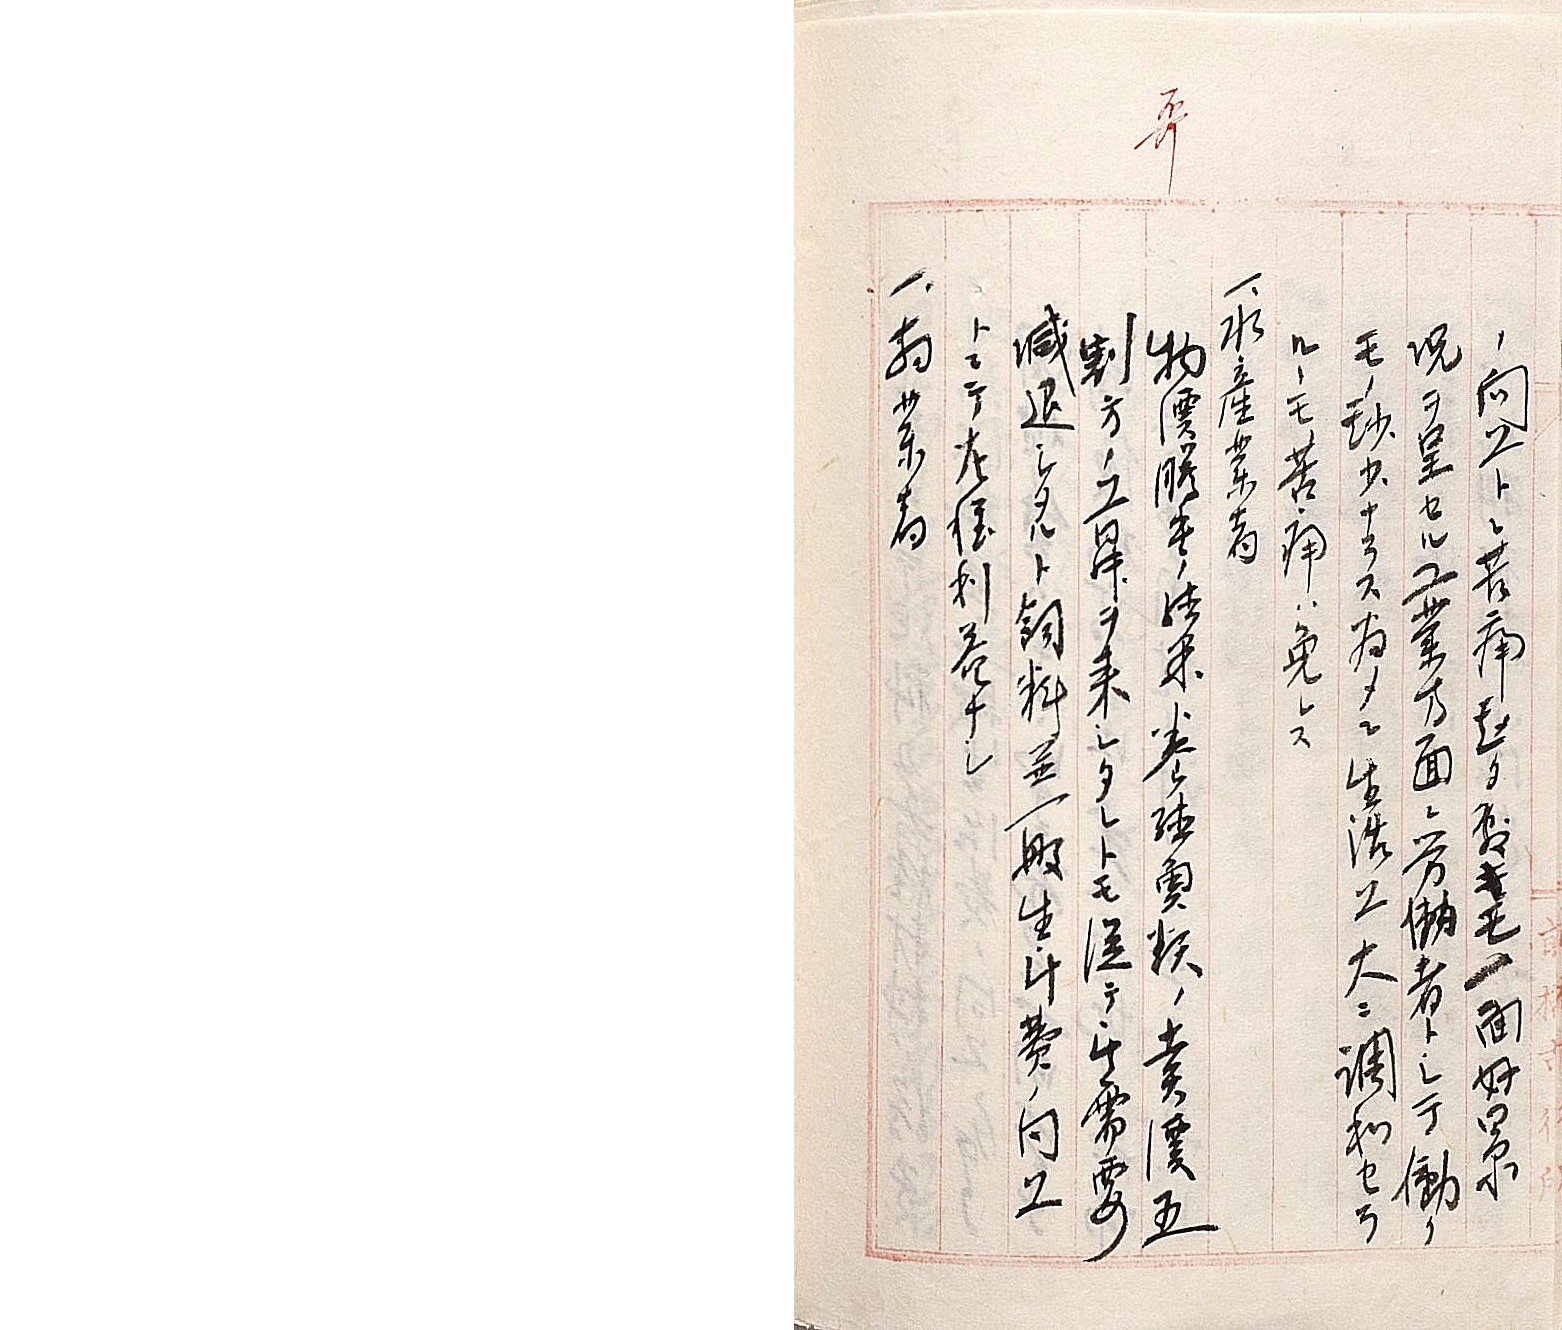 ノ向上ト共ニ苦痛起リタルモ一面好景
況ヲ呈セル工業方面ニ労働者トシテ働ク
モノ尠少ナラス為メニ生活上大ニ調和セラ
ルヽモ苦痛ハ免レス
一、水産業者
物價騰貴ノ結果養鯉類ノ賣價五
割方ノ上昇ヲ来シタレトモ従テ需要
減退シタルト飼料並一般生計費ノ向上
トニテ左程利益ナシ
一、商業者